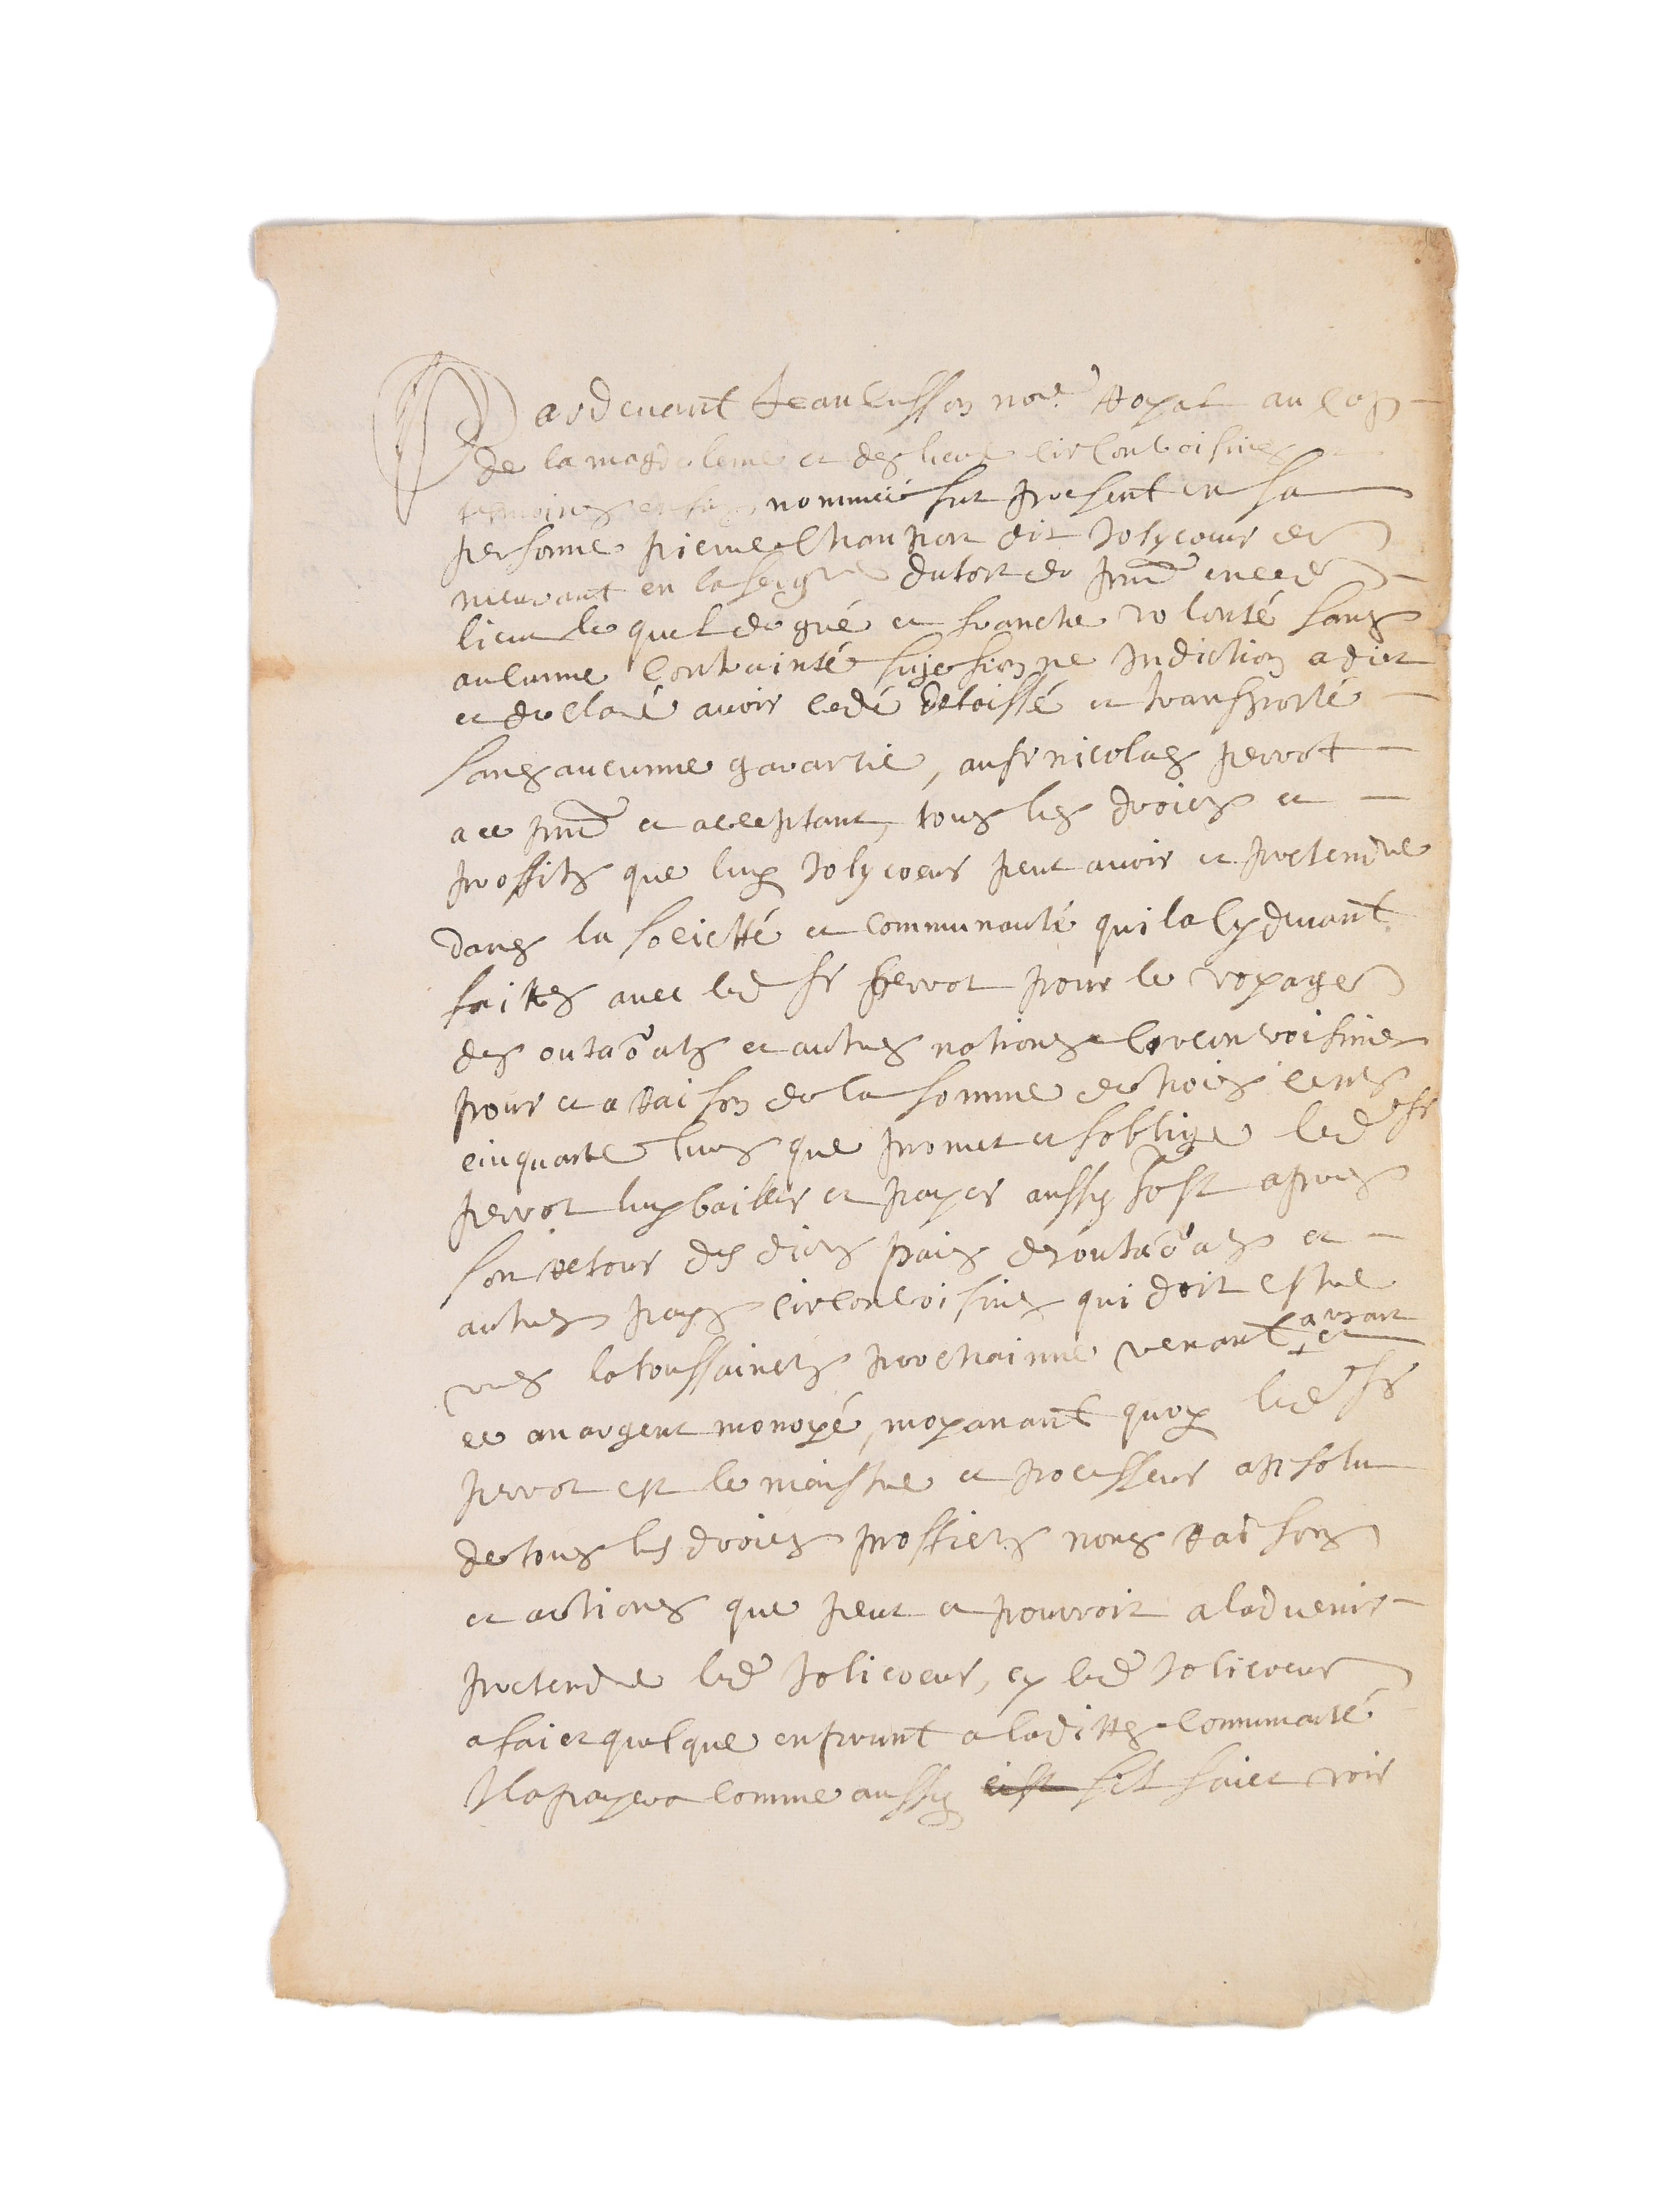 Pardevant Jean Cusson no.re Royal au Cap
de la magdeleine et des lieux circonvoisines
temoings en fin nommés fut present en sa
personne pierre Chaunart dit Jolycoeur de
meurant en la seig.rie dutort de pnt en ced
lieu le quel de gré et franche volonté sans
aucunne Contrainte sujession ne Indiction a dict
et declaré avoir cedé delaissé et transporté
sans aucunne garantie, au sr nicolas perrot
a ce pnt et acceptant, tous les droicts et
proffits que luy Jolycoeur peut avoir et pretendre
dans la socictté et communauté quila cy devant
faittes avec led sr perrot pour le voyage
des outaoats et autres nations circonvoisines
pour et a raison de la somme de trois cents
cinquante livres que promet et soblige led sr
perrot luy bailler et payer aussy tost apres
son retour des dicts païs des outaoats et
autres pays circonvoisines qui doit estre
vers la toussaincts prochainne venant avant et
ce an argent monoyé, moyanant quoy led sr
perrot est le maistre et processeur apsolu
de tous les droicts proffiets noms raisons
et actions que peut et pourroit a ladvenir
pretendre led Jolicoeur, cy led Jolicoeur
a faict quelque enprunt a laditte Communauté
Il a payera comme aussy est sil faict voir